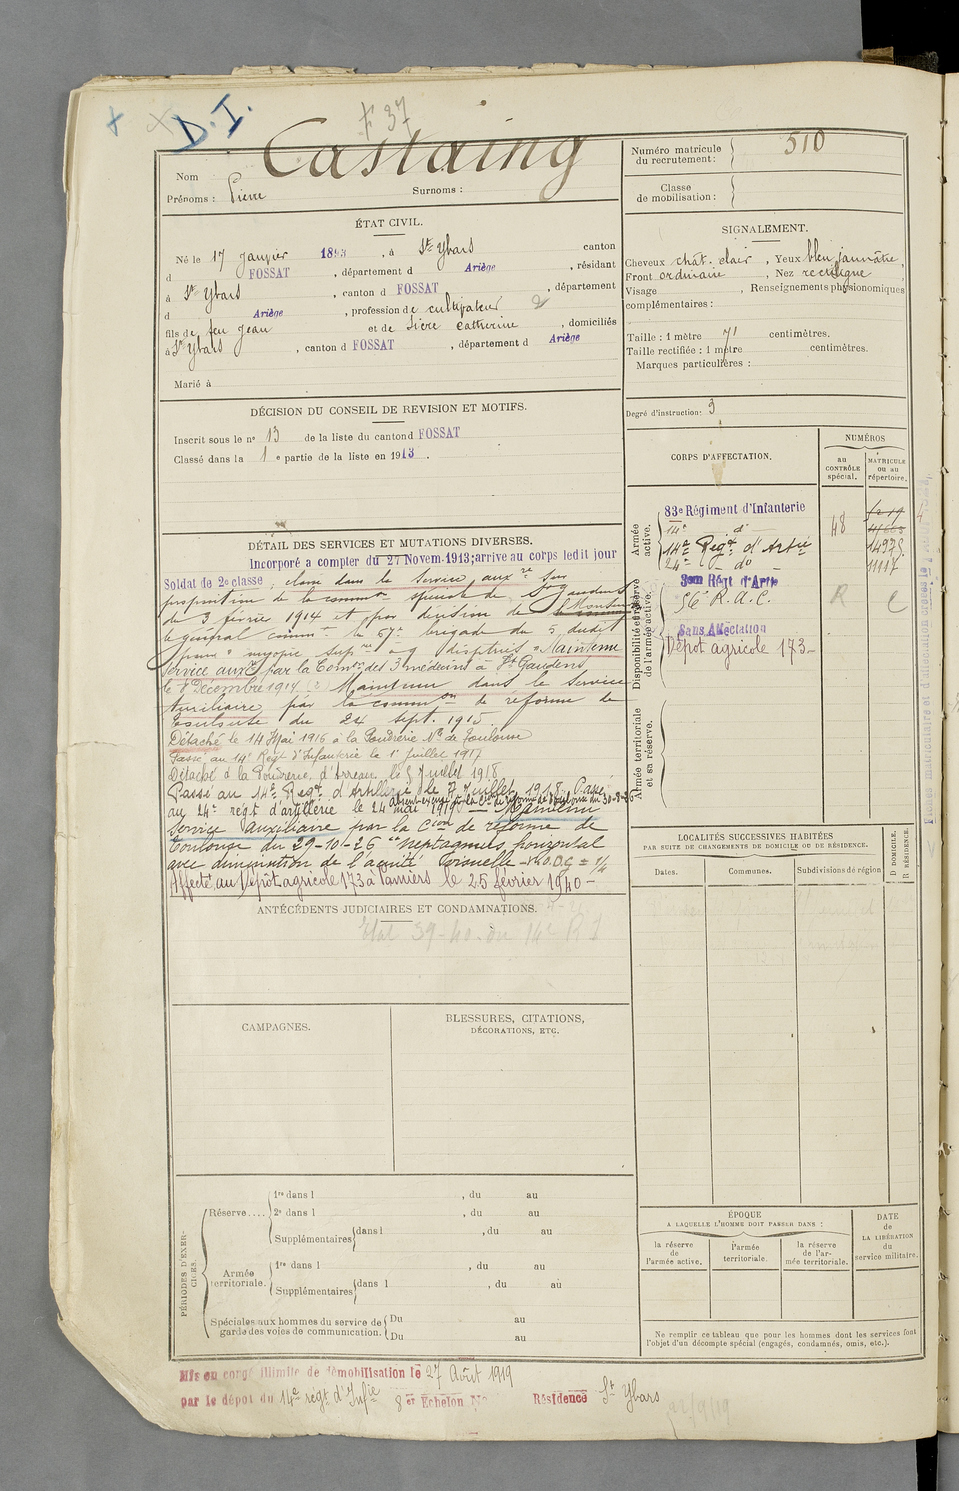 D.I.
F 37
Castaing
Nom
Prénoms : Pierre Surnoms :
Numéro matricule du recrutement : 510
Classe de mobilisation :
ÉTAT CIVIL.
Né le 17 Janvier 1893, à St Ybars canton
d FOSSAT, département d Ariège, résidant
à St Ybars, canton d FOSSAT, département
d Ariège, profession de cultivateur
fils de feu Jean et de Catherine, domiciliés
à St Ybars, canton d FOSSAT, département d Ariège
Marié à
SIGNALEMENT.
Cheveux chat. clair, Yeux bleu jaunâtre,
Front ordinaire, Nez rectiligne
Visage, Renseignements physionomiques
complémentaires :
Taille : 1 mètre 71 centimètres.
Taille rectifiée : 1 mètre centimètres.
Marques particulières :
Degré d'instruction : 3
DÉCISION DU CONSEIL DE REVISION ET MOTIFS.
Inscrit sous le no 13 de la liste du canton d FOSSAT
Classé dans la 1e partie de la liste en 1913.
DÉTAIL DES SERVICES ET MUTATIONS DIVERSES.
Incorporé a compter du 27 Novem. 1913; arrive au corps ledit jour
Soldat de 2e classe; classé dans le service auxre sur
proposition de la common spéciale de St Gaudens
du 3 février 1914 et par décision de
le général commt la 67e brigade du 5 dudit
pour " myopie supre à 7 dioptries " Maintenu
service auxre par la Comon des 3 médecins à St Gaudens
le 8 Décembre 1914 Maintenu dans le service
Auxiliaire par la common de réforme de
Toulouse du 24 sept. 1915
Détaché le 14 Mai 1916 à la Poudrerie Nle de Toulouse
Passé au 14e Régt d'Infanterie le 1er Juillet 1917
Détaché à la Poudrerie, d'Arreau, le 5 Juillet 1918
Passé au 14e Régt d'Artillerie le 7 Juillet 1918. Passé
au 24e régt d'artillerie le 24 mai 1919
Maintenu
Service auxiliaire par la Cion de réforme de
Toulouse du 29-10-26 "neptagmus horizontal
avec diminution de l'acuité visuelle - V.O.D.G = 1/4
Affecté au Dépôt agricole 173 à Pamiers le 25 février 1940 -
CORPS D'AFFECTATION.
NUMÉROS
au CONTRÔLE spécial.
MATRICULE ou au répertoire.
Armée active.
83e Régiment d'Infanterie
14e do
14e Régt d'Artie 14975
24e - do - 11117
48
Disponibilité et réserve de l'armée active.
Régt d'Artie
56e R.A.C.
R
Sans Affectation
Dépôt agricole 173-
Armée territoriale et sa réserve.
LOCALITÉS SUCCESSIVES HABITÉES
PAR SUITE DE CHANGEMENTS DE DOMICILE OU DE RÉSIDENCE.
Dates.
Communes.
Subdivisions de région
D DOMICILE. R RÉSIDENCE.
ANTÉCÉDENTS JUDICIAIRES ET CONDAMNATIONS.
Etat 39-40. du 14e R I
CAMPAGNES.
BLESSURES, CITATIONS,
DÉCORATIONS, ETC.
PÉRIODES D'EXERCICES.
Réserve....
1re dans l , du au
2e dans l , du au
Supplémentaires dans l , du au
Armée territoriale.
1re dans l , du au
Supplémentaires dans l , du au
Spéciales aux hommes du service de garde des voies de communication.
Du au
Du au
ÉPOQUE
A LAQUELLE L'HOMME DOIT PASSER DANS :
la réserve de l'armée active.
l'armée territoriale.
la réserve de l'armée territoriale.
DATE de LA LIBÉRATION du service militaire.
Ne remplir ce tableau que pour les hommes dont les services font
l'objet d'un décompte spécial (engagés, condamnés, omis, etc.).
Mis en congé illimité de démobilisation le 27 Août 1919
par le dépôt du 14e régt d'Infie 8e Echelon No Résidence St Ybars